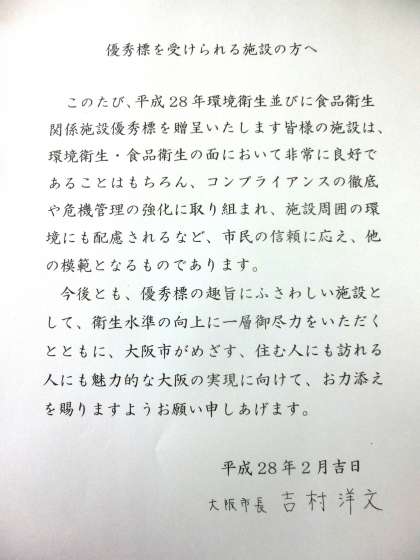 優秀標を受けられる施設の方へ
このたび、平成28年環境衛生並びに食品衛生
関係施設優秀標を贈呈いたします皆様の施設は、
環境衛生・食品衛生の面において非常に良好で
あることはもちろん、コンプライアンスの徹底
や危機管理の強化に取り組まれ、施設周囲の環
境にも配慮されるなど、市民の信頼に応え、他
の模範となるものであります。
今後とも、優秀標の趣旨にふさわしい施設と
して、衛生水準の向上に一層御尽力をいただく
とともに、大阪市がめざす、住む人にも訪れる
人にも魅力的な大阪の実現に向けて、お力添え
を賜りますようお願い申しあげます。
平成28年2月吉日
大阪市長 吉村洋文